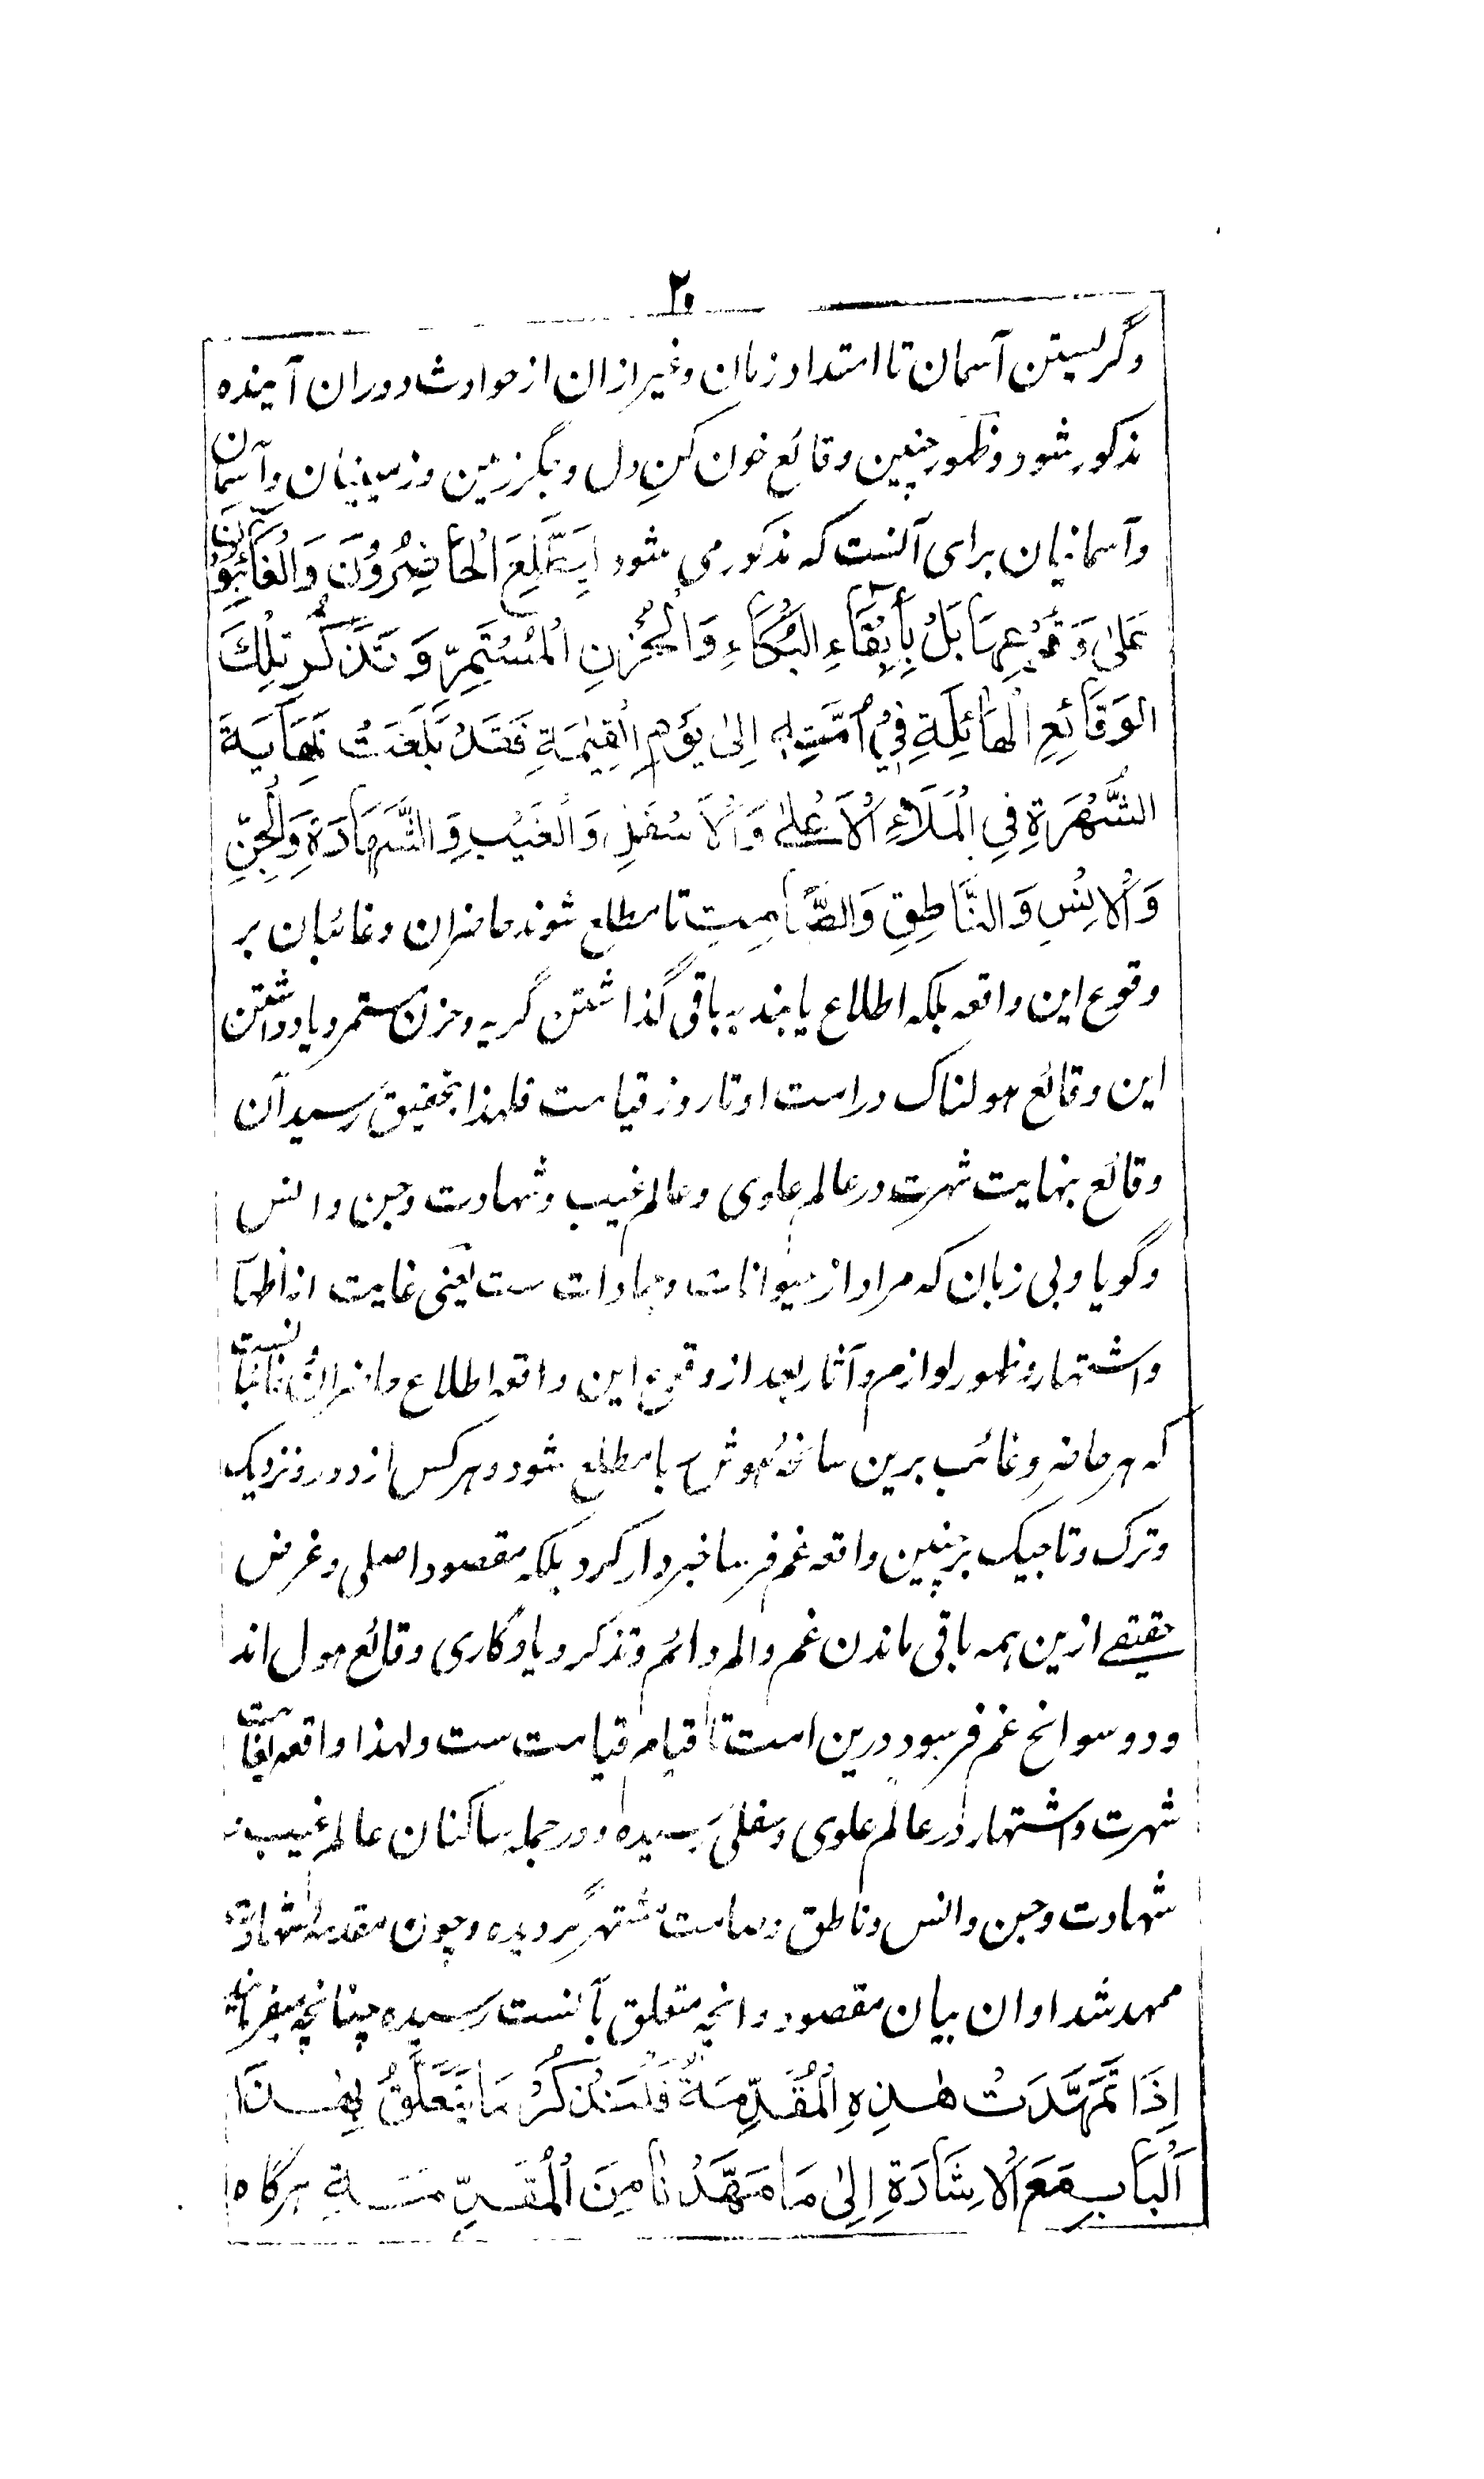 ۲۰
وگریستن آسمان تا امتداد زمان وغیر ازان از حوادث دوران آینده
مذکور شود وظهور چنین وقائع خون کنِ دل وجگر زمین وزمینیان وآسمان
وآسمانیان برای آنست که مذکور می شود لِیَطَّلِعَ الْحَاضِرُوْنَ وَالْغَائِبُوْنَ
عَلیٰ وَقُوْعِهَا بَلْ بِاِبْقَاءِ الْبُکَاءِ وَالْحُزْنِ الْمُسْتَمِرِّ وَ تَذَکُّرِ تِلْكَ
الوَقَائِعِ الْهَائِلَةِ فِيْ اُمَّتِهٖ اِلیٰ یَوْمِ الْقِیٰمَةِ فَقَدْ بَلَغَتْ نِهَایَةَ
الشُّهْرَةِ فِی الْمَلَاءِ الْاَعْلیٰ وَالْاَسْفَلِ وَالْغَیْبِ وَالشَّهَادَةِ وَالْجِنِّ
وَالْاِنْسِ وَالنَّاطِقِ وَالصَّامِتِ تا مطلع شوند حاضران وغائبان بر
وقوع این واقعه بلکه اطلاع یابند به باقی گذاشتن گریه وحزن مستمر ویاد داشتن
این وقائع هولناک در امت او تا روز قیامت فلهذا بتحقیق رسید آن
وقائع بنهایت شهرت در عالم علوی وعالم غیب وشهادت وجن وانس
وگویا وبی زبان که مراد از حیوانات وجمادات ست یعنی غایت از اظهار
واشتهار وظهور لوازم وآثار بعد از وقوع این واقعه اطلاع حاضران وغائبانست
که هر حاضر وغائب برین سانحهٔ هوش ربا مطلع شود وهر کس از دور ونزدیک
وترک وتاجیک برچنین واقعه غم فرسا خبردار گردد بلکه مقصود اصلی وغرض
حقیقے ازین همه باقی ماندن غم والم دائم وتذکر ویادگاری وقائع هول اند
ودو سوانح غم فرسود درین امت تا قیام قیامت ست ولهذا واقعه بغایت
شهرت واشتهار در عالم علوی وسفلی رسیده ودر جمله ساکنان عالم غیب و
شهادت وجن وانس وناطق وصامت مشتهر گردیده وچون مقدمه شهادت
ممهد شد اوان بیان مقصود وانچه متعلق بآنست رسیده چنانچه میفرماید
اِذَا تَمَهَّدَتْ هٰذِهِ الْمُقَدِّمَةُ فَلْنَذْکُرْ مَا یَتَعَلَّقُ بِهٰذَا
الْبَابِ مَعَ الْاِشَارَةِ اِلیٰ مَا مَهَّدْنَا مِنَ الْمُقَدِّمَةِ هرگاه